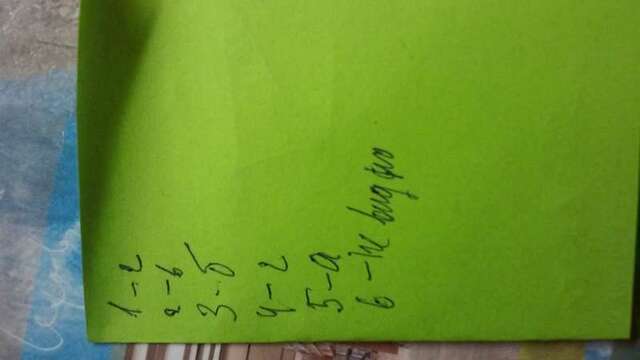 1 - г
2 - в
3 - б
4 - г
5 - а
6 - не видно